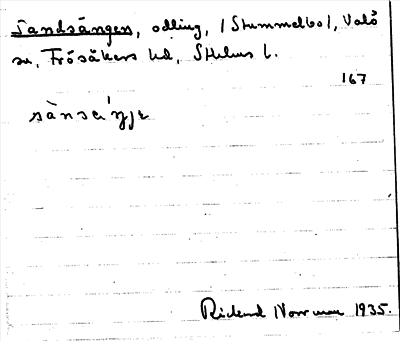 Sandsängen, odling, (Stummelbo), Valö
sn, Frösåkers hd, Sthlms l.
167
sànsæ'ŋje
Rickard Norrman 1935.